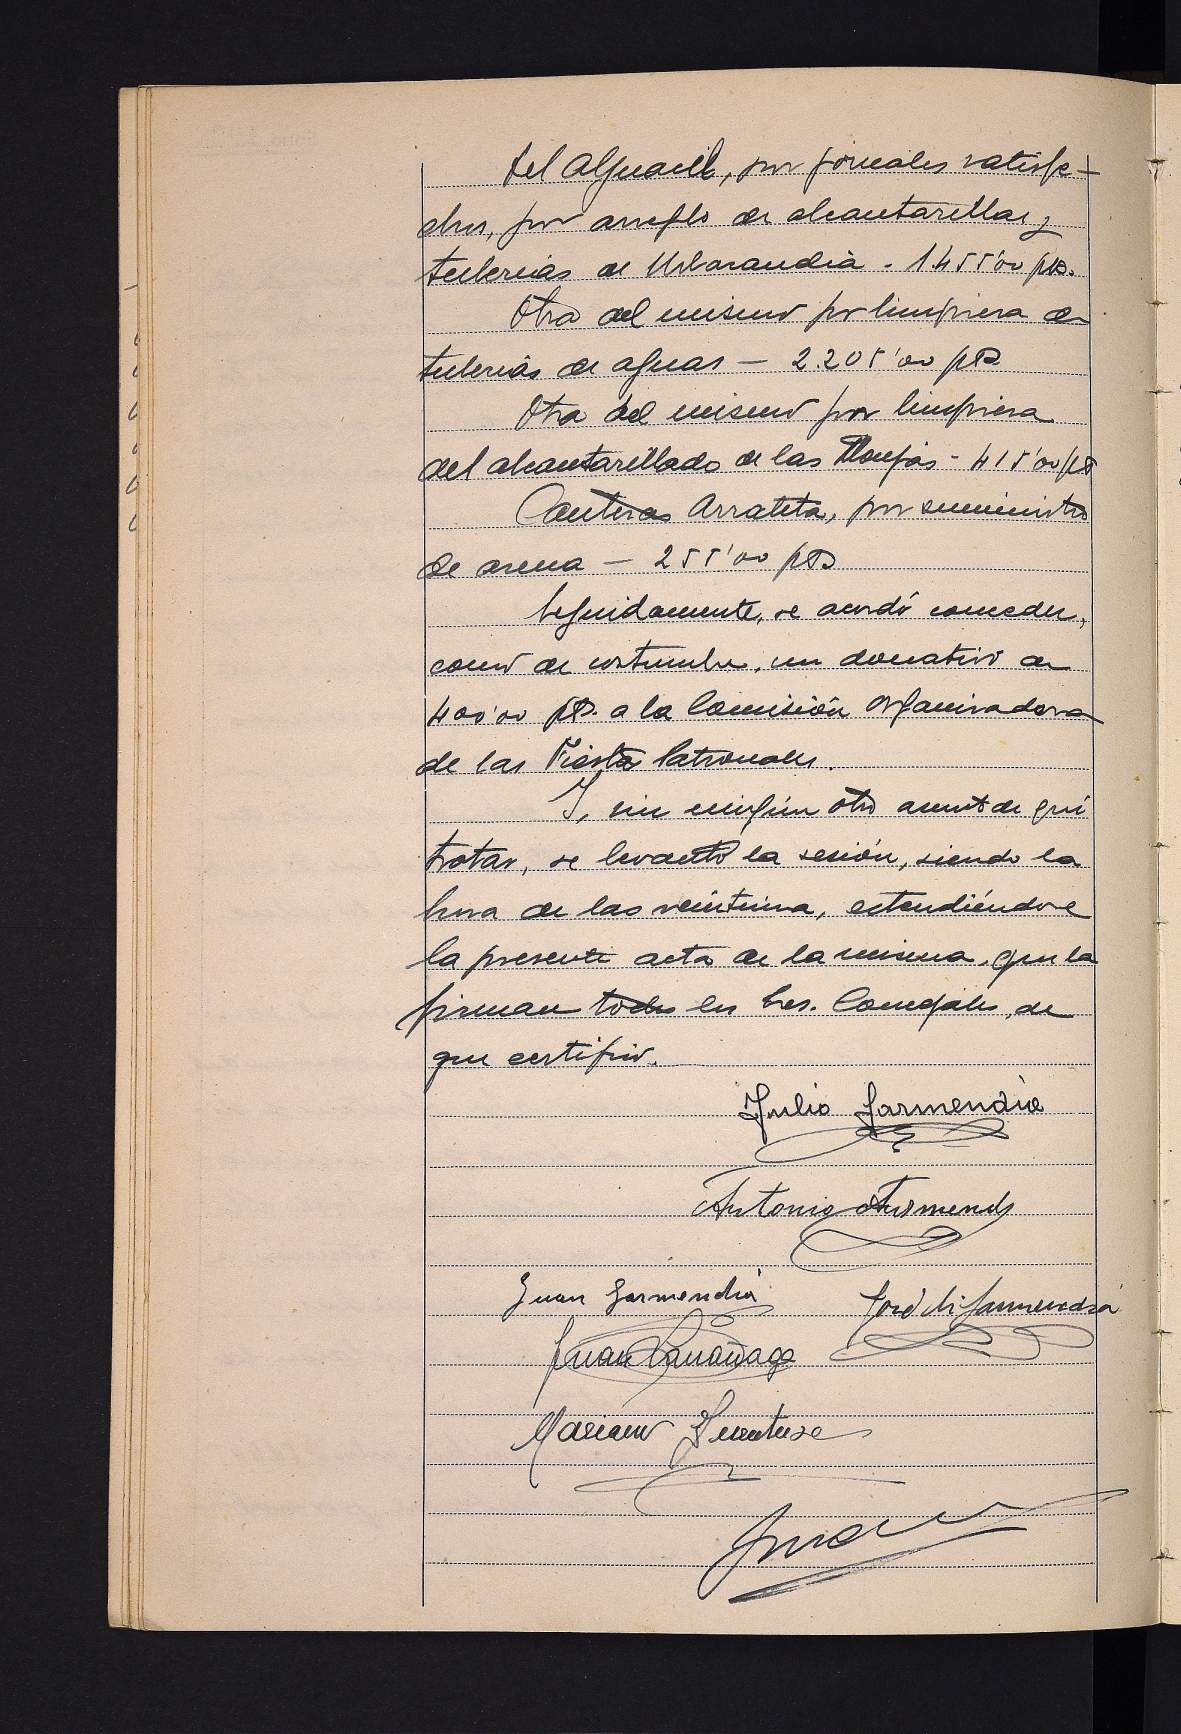 del Alguacil, por jornales satisfe-
chos, por arreglo de alcantarillas y
tuberias de Urbarandia - 1455'00 pts.
Otra del mismo por limpieza de
tuberias de aguas — 2.205'00 pts
Otra del mismo por limpieza
del alcantarillado de las Monjas - 415'00 pts
Canteras Arrateta, por suministro
de arena — 255'00 pts
Seguidamente, se acordó conceder,
como de costumbre, un donativo de
400'00 pts. a la Comisión Organizadora
de las Fiestas Patronales.
Y, sin ningún otro asunto de que
tratar, se levantó la sesión, siendo la
hora de las veintiuna, extendiéndose
la presente acta de la misma, que la
firman todos los Sres. Concejales, de
que certifico.
Julio Garmendia
Antonio
Juan Garmendia José Mª Garmendia
Juan
Mariano